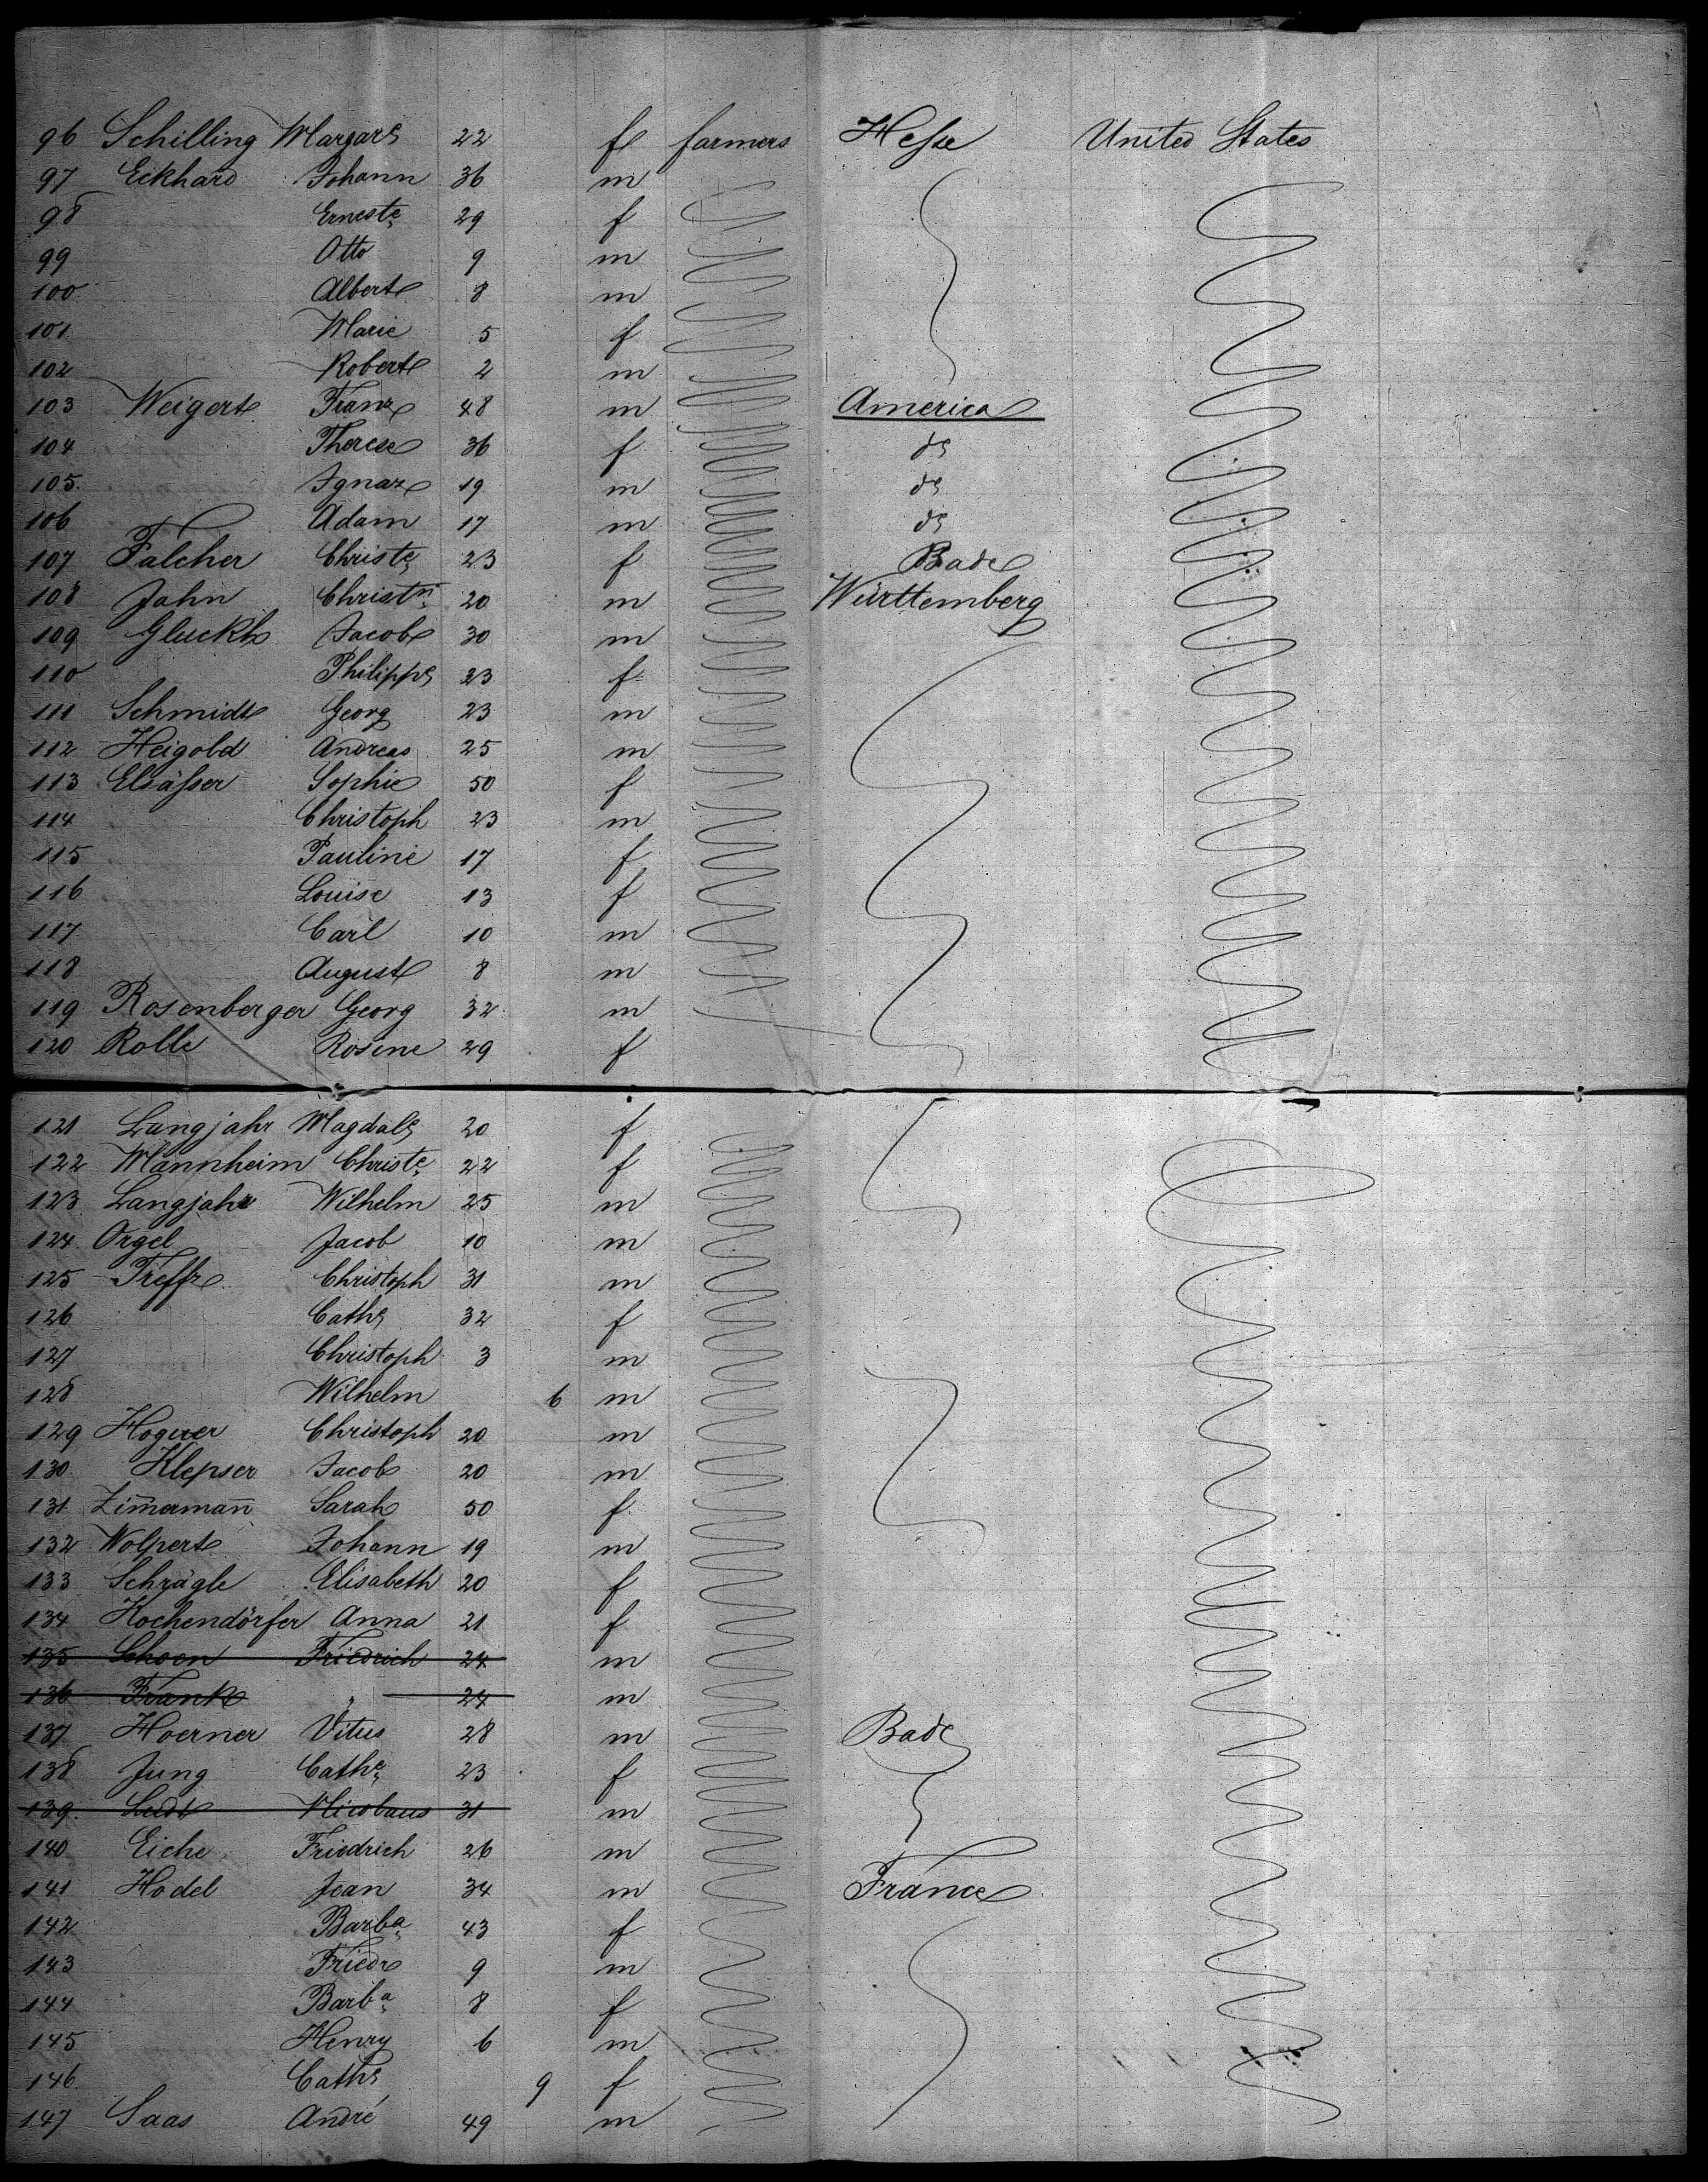 96 Schilling Margare 22 f farmers Hesse United States
97 Eckhard Johann 36 m
98 Erneste 29 f
99 Otto 9 m
100 Albert 8 m
101 Marie 5 f
102 Robert 2 m
103 Weigert Franz 48 m America
104 Therese 36 f do
105 Ignaz 19 m do
106 Adam 17 m do
107 Falcher Christe 23 f Bade
108 Jahn Christn 20 m Württemberg
109 Gluckh Jacob 30 m
110 Philippe 23 f
111 Schmidt Georg 23 m
112 Heigold Andreas 25 m
113 Elsäßer Sophie 50 f
114 Christoph 23 m
115 Pauline 17 f
116 Louise 13 f
117 Carl 10 m
118 August 8 m
119 Rosenberger Georg 32 m
120 Rolle Rosine 29 f
121 Langjahr Magdale 20 f
122 Mannheim Christe 22 f
123 Langjahr Wilhelm 25 m
124 Orgel Jacob 10 m
125 Treffz Christoph 31 m
126 Cathe 32 f
127 Christoph 3 m
128 Wilhelm 6 m
129 Hoguer Christoph 20 m
130 Klepser Jacob 20 m
131 Zim̄erman̄ Sarah 50 f
132 Wolpert Johann 19 m
133 Schrägle Elisabeth 20 f
134 Kochendörfer Anna 21 f
135 Schoon Friedrich 24 m
136 Frank " 24 m
137 Hoerner Vitus 28 m Bade
138 Jung Cathe 23 f
139 Nicolaus 31 m
140 Eiche Friedrich 26 m
141 Hodel Jean 34 m France
142 Barba 43 f
143 Friedr 9 m
144 Barba 8 f
145 Henry 6 m
146 Cathe 9 f
147 Saas André 49 m